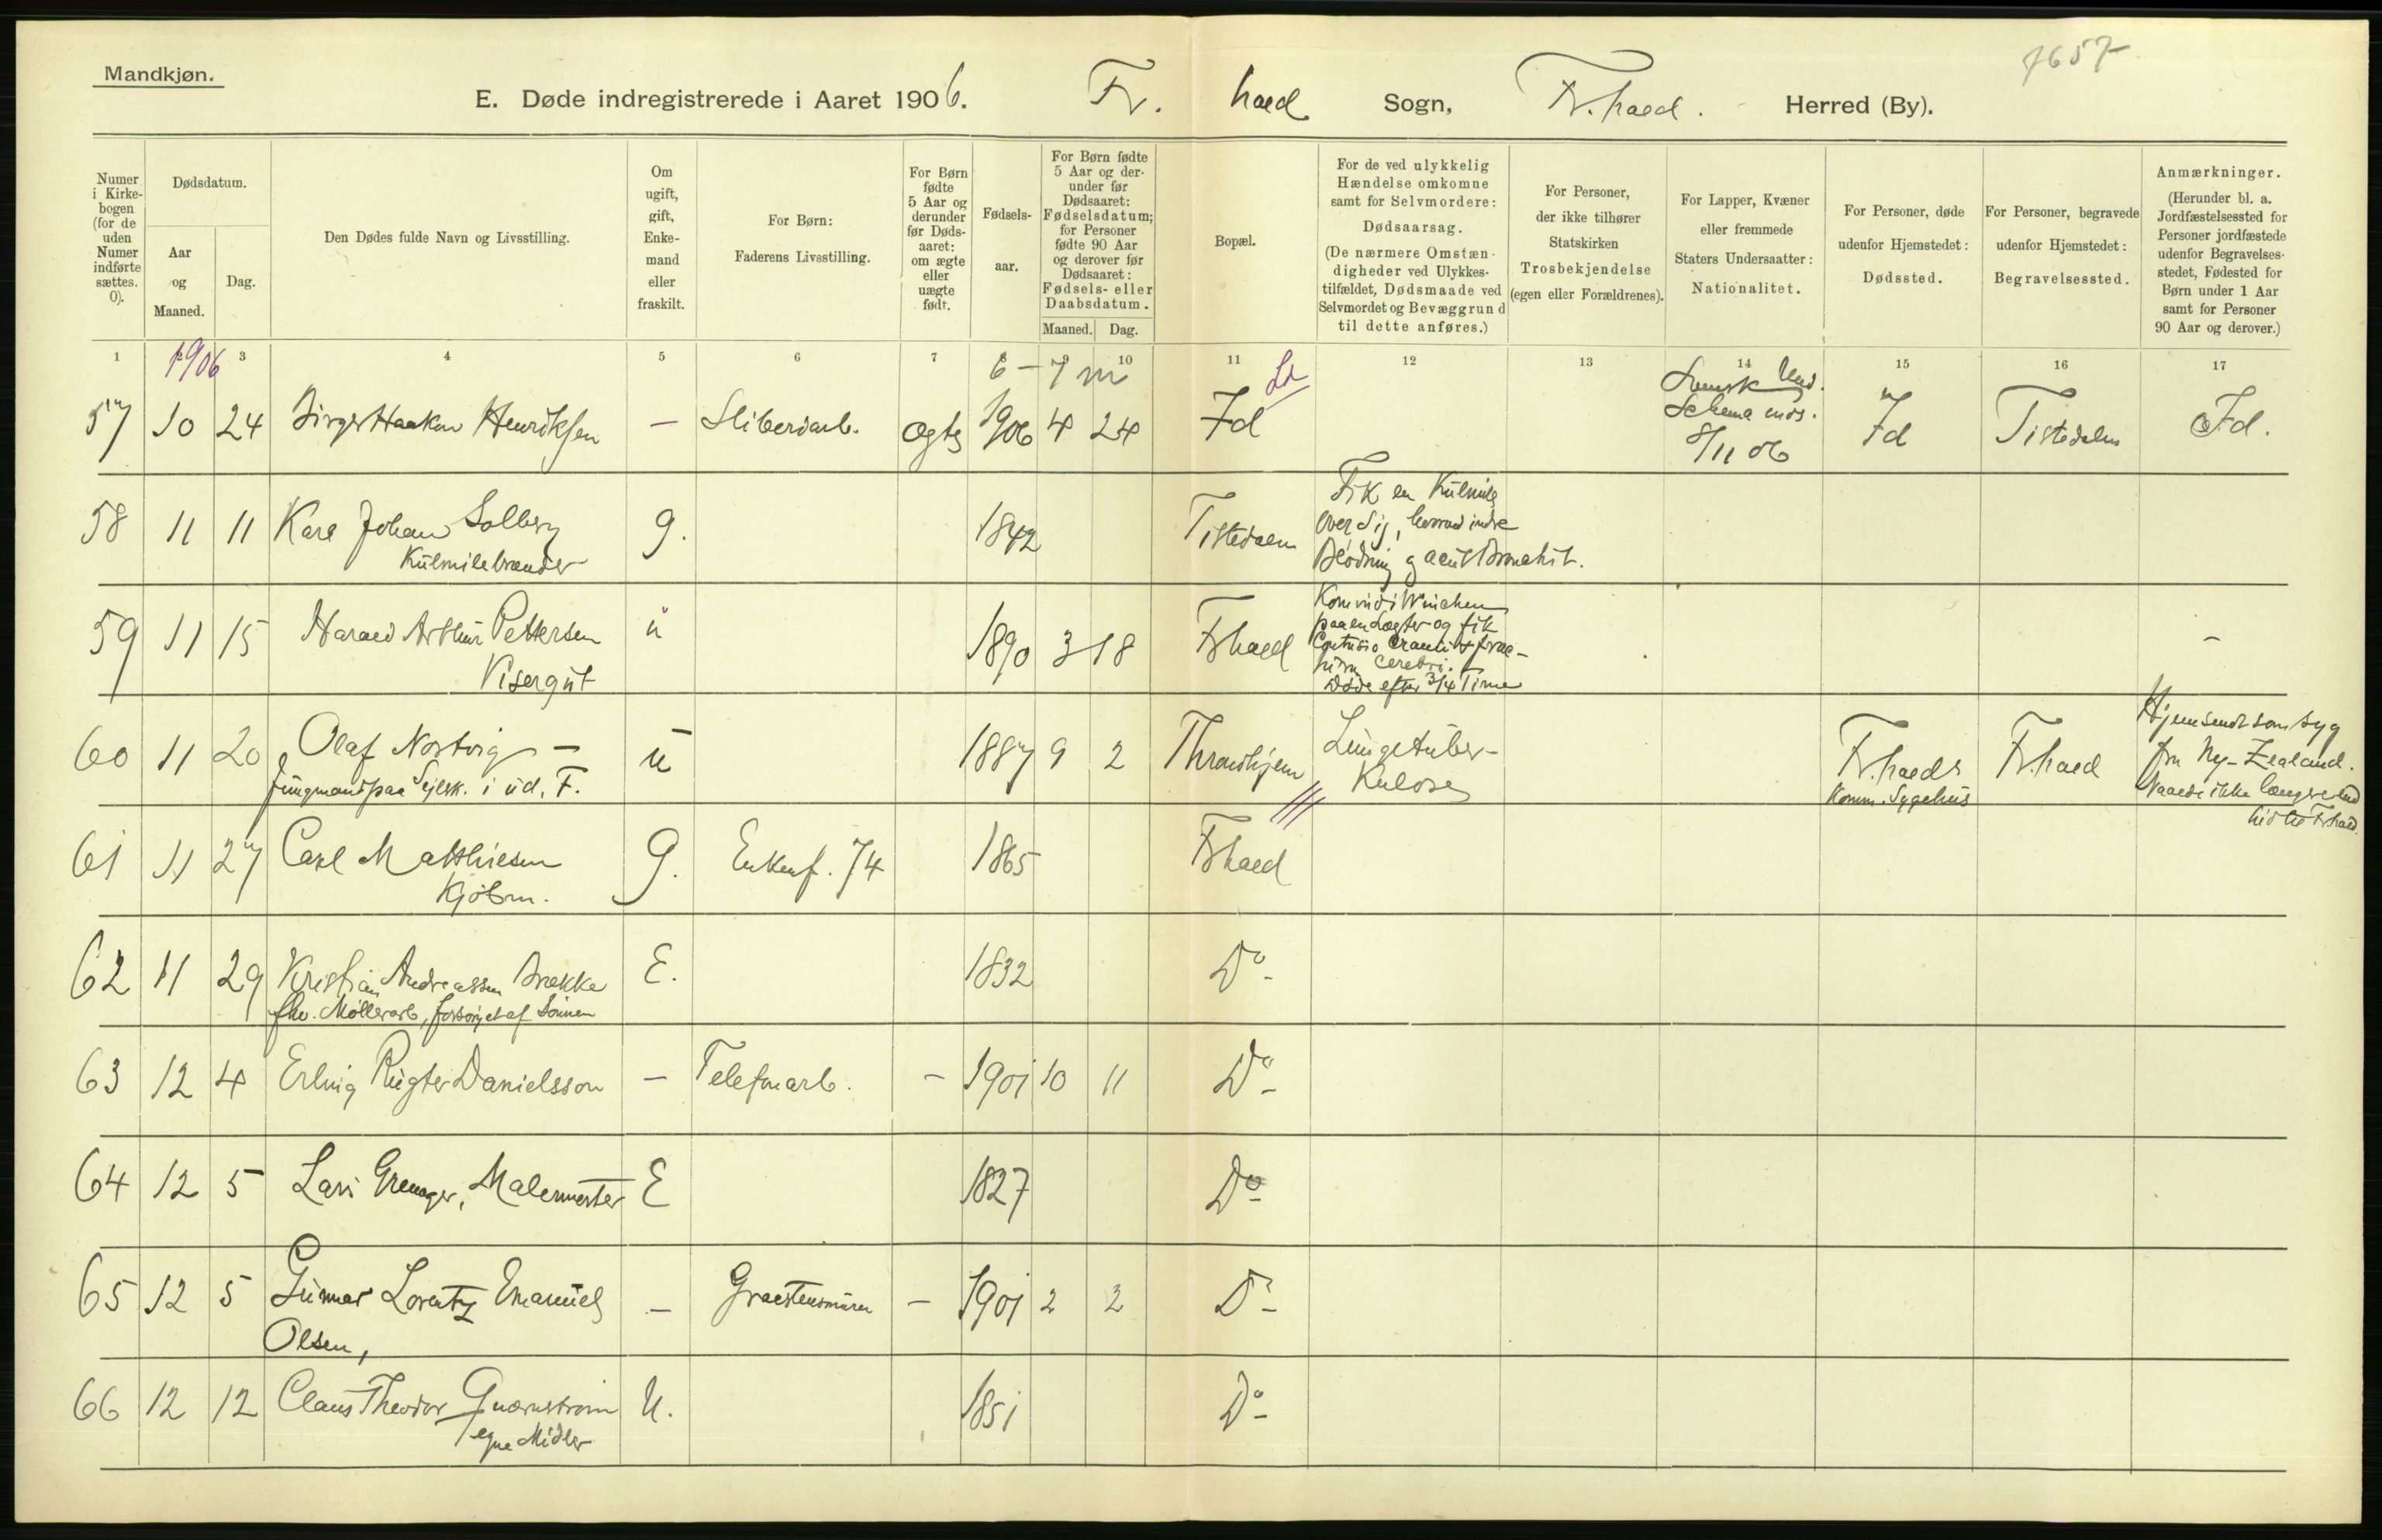 7657
Mandkjøn.
E. Døde indregistrerede i Aaret 1906. Fr. hald Sogn, Fr.hald. Herred (By).
Numer i Kirkebogen (for de uden Numer indførte sættes. 0).
Dødsdatum.
Aar og Maaned.
Dag.
Den Dødes fulde Navn og Livsstilling.
Om ugift, gift, Enkemand eller fraskilt.
For Børn: Faderens Livsstilling.
For Børn fødte 5 Aar og derunder før Dødsaaret: om ægte eller uægte født.
Fødselsaar.
For Børn fødte 5 Aar og derunder før Dødsaaret: Fødselsdatum; for Personer fødte 90 Aar og derover før Dødsaaret: Fødsels- eller Daabsdatum.
Maaned. Dag.
Bopæl.
For de ved ulykkelig Hændelse omkomne samt for Selvmordere: Dødsaarsag. (De nærmere Omstændigheder ved Ulykkestilfældet, Dødsmaade ved Selvmordet og Bevæggrund til dette anføres.)
For Personer, der ikke tilhører Statskirken Trosbekjendelse (egen eller Forældrenes).
For Lapper, Kvæner eller fremmede Staters Undersaatter: Nationalitet.
For Personer, døde udenfor Hjemstedet: Dødssted.
For Personer, begravede udenfor Hjemstedet: Begravelsessted.
Anmærkninger. (Herunder bl. a. Jordfæstelsessted for Personer jordfæstede udenfor Begravelsesstedet, Fødested for Børn under 1 Aar samt for Personer 90 Aar og derover.)
1 2 3 4 5 6 7 8 9 10 11 12 13 14 15 16 17
1906 6 - 7 m
57 10 24 Birger Haakon Henriksen — Sliberiarb. Ægte 1906 4 24 Id Svensk Und. Schema inds. 8/11 06 Id Tistedalen Id.
58 11 11 Karl Johan Solberg g. 1842 Tistedalen Fik en Kulmile
Kulmilebrænder over sig, hvorved indre
Blødning g acut Bronchit.
59 11 15 Harald Arthur Pettersen u 1890 3 18 Frhald Kom ind i Winchen
Visergut paa en Lægter og fik
Contusio Cranii &
cerebri.
Døde efter 3/4 Time
60 11 20 Olaf Nostvig — u 1887 9 2 Throndhjem Lungetuber- Fr.halds Fr.hald Hjemsendt som syg
Jungmand paa Sejlsk. i ud. F. kulose Komm. Sygehus fra Ny-Zealand.
Naaede ikke længre end
hid til Frhald.
61 11 27 Carl Matthiesen G. Enkenf. 74 1865 Frhald
Kjøbm.
62 11 29 Kristian Andreassen Brække E. 1832 Do -
fhv. Møllerarb, forsørget af Sønnen
63 12 4 Erling Rugter Danielsson — Telefonarb. — 1901 10 11 Do -
64 12 5 Lars Grenager, Malermester E 1827 Do -
65 12 5 Gunnar Lorentz Emanuel — Graastensmurer — 1901 2 2 Do -
Olsen,
66 12 12 Claus Theodor Qvarnstrøm U. 1851 Do -
egne Midler